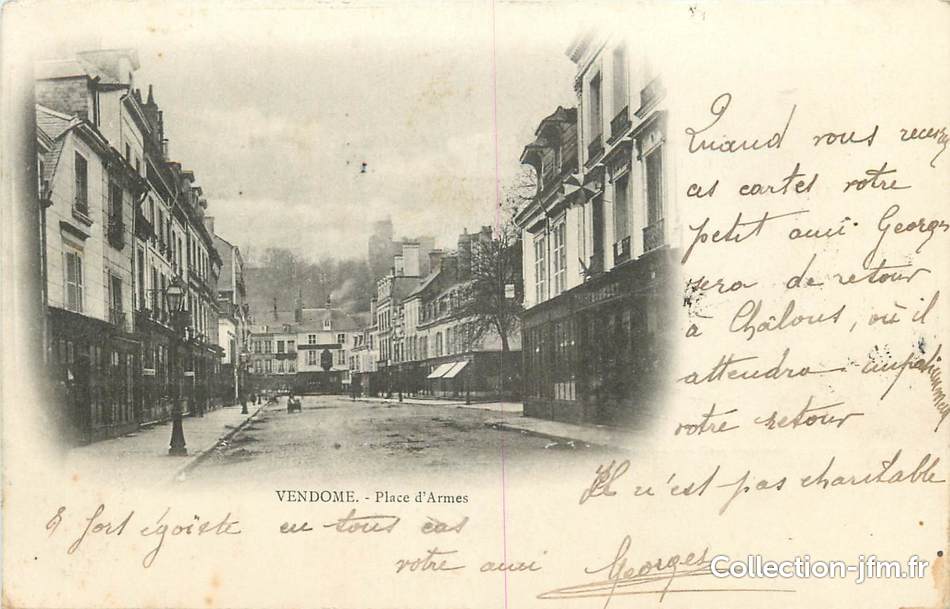 Quand vous recevrez
ces cartes votre
petit ami Georges
sera de retour
à Châlons, où il
attendra impatiemment
votre retour
VENDOME. - Place d'Armes
Il n'est pas charitable
& fort égoïste en tous cas
votre ami Georges
Collection-jfm.fr